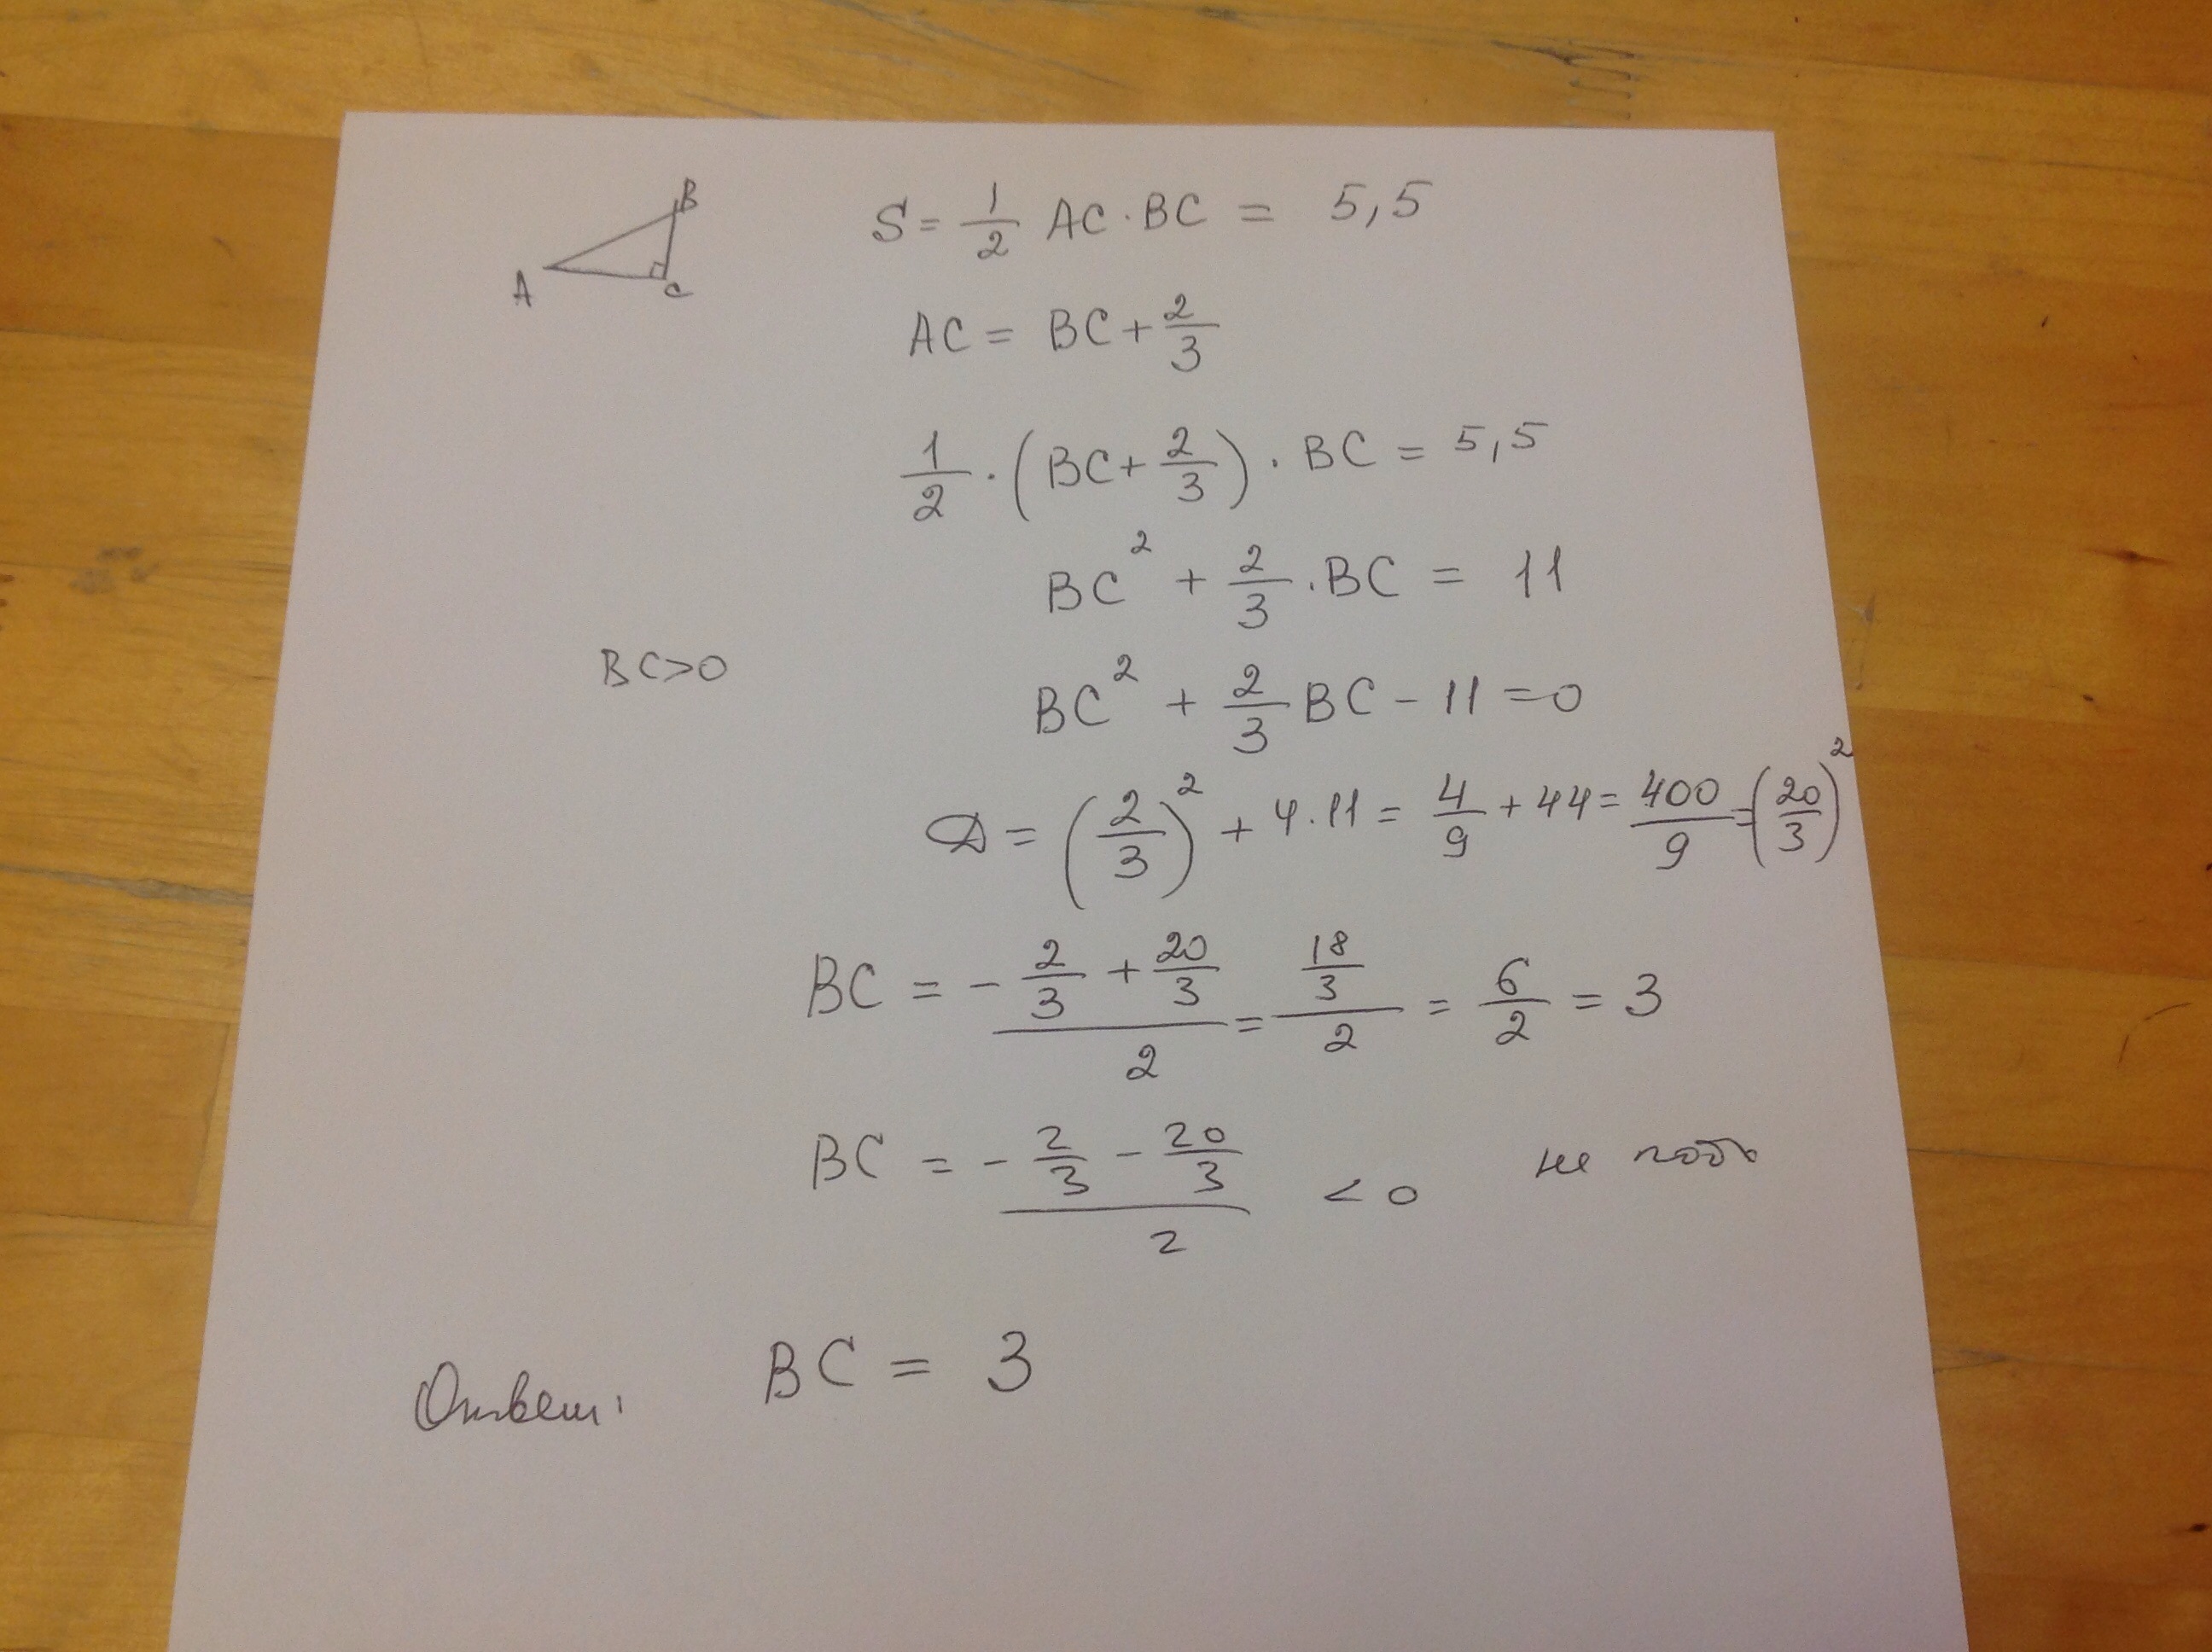 B
A
C
S = 1/2 AC · BC = 5,5
AC = BC + 2/3
1/2 · (BC + 2/3) · BC = 5,5
BC² + 2/3 · BC = 11
BC>0
BC² + 2/3 BC - 11 = 0
D = (2/3)² + 4·11 = 4/9 + 44 = 400/9 = (20/3)²
BC = (-2/3 + 20/3)/2 = (18/3)/2 = 6/2 = 3
BC = (-2/3 - 20/3)/2 < 0 не подх
Ответ: BC = 3